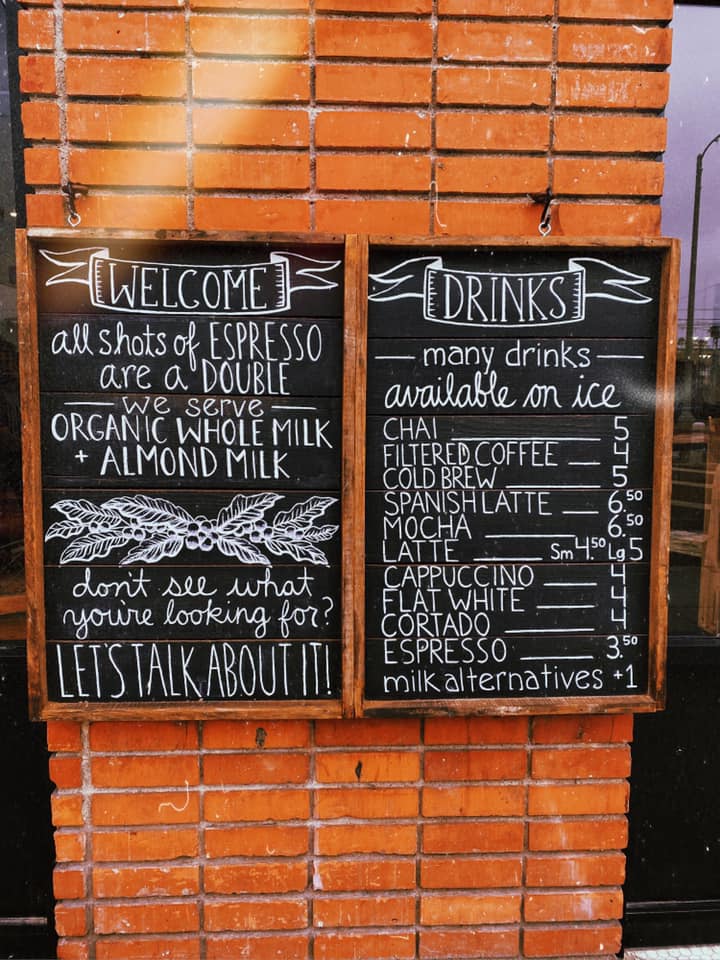 WELCOME
all shots of ESPRESSO
are a DOUBLE
we serve
ORGANIC WHOLE MILK
+ ALMOND MILK
don't see what
you're looking for?
LET'S TALK ABOUT IT!
DRINKS
many drinks
available on ice
CHAI 5
FILTERED COFFEE 4
COLD BREW 5
SPANISH LATTE 6.50
MOCHA 6.50
LATTE Sm 4.50 Lg 5
CAPPUCCINO 4
FLAT WHITE 4
CORTADO 4
ESPRESSO 3.50
milk alternatives +1